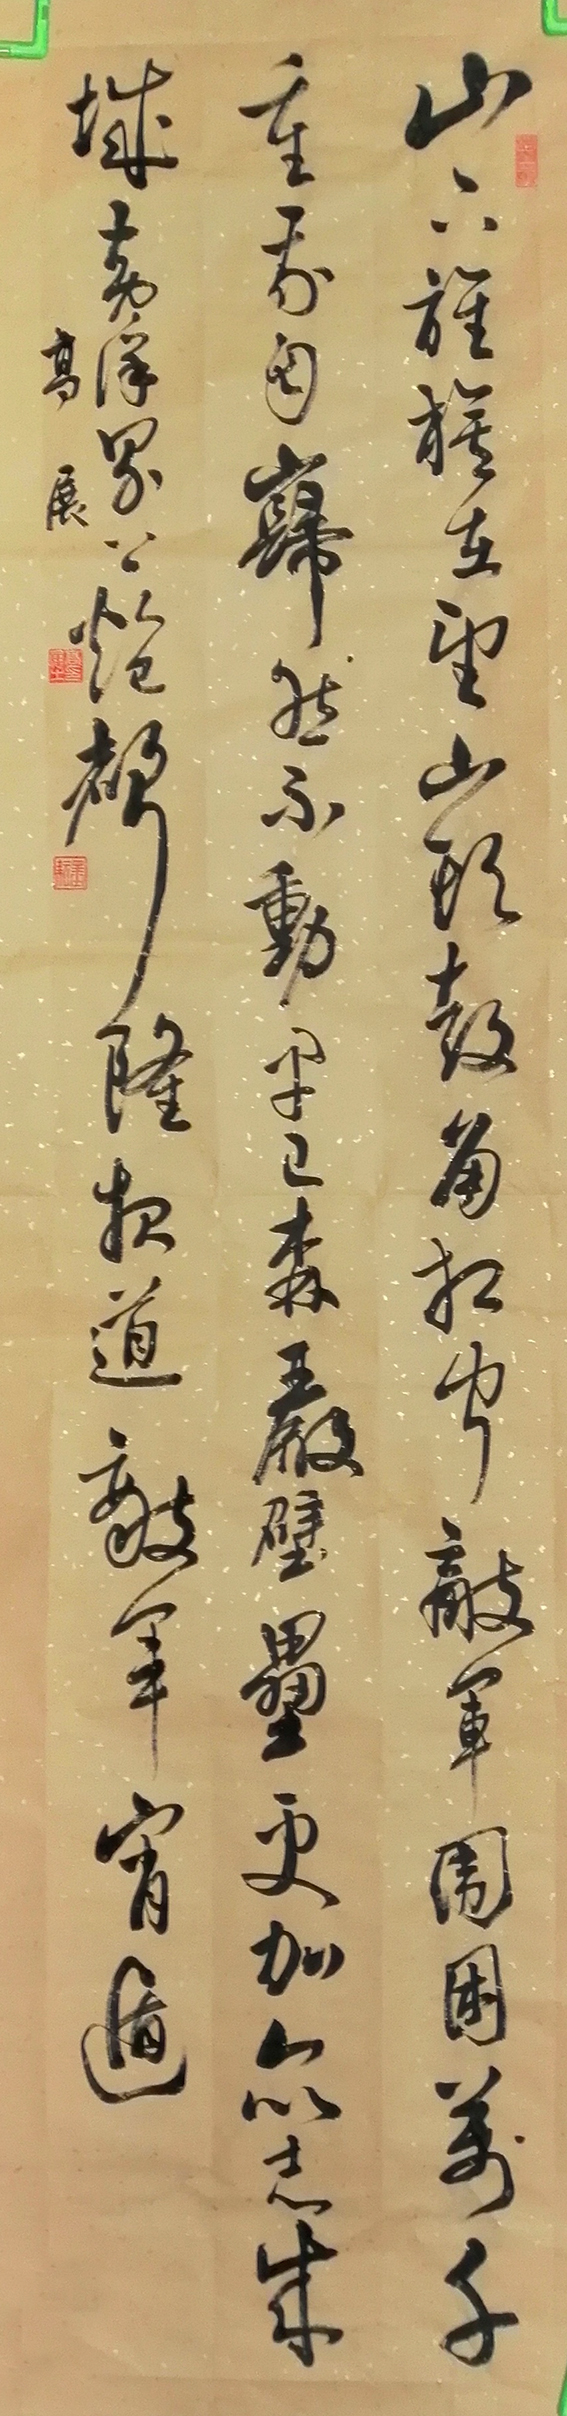 山下旌旗在望山頭鼓角相聞敵軍圍困萬千
重我自巋然不動早已森嚴壁壘更加众志成
城黄洋界上炮聲隆報道敵軍宵遁
高展